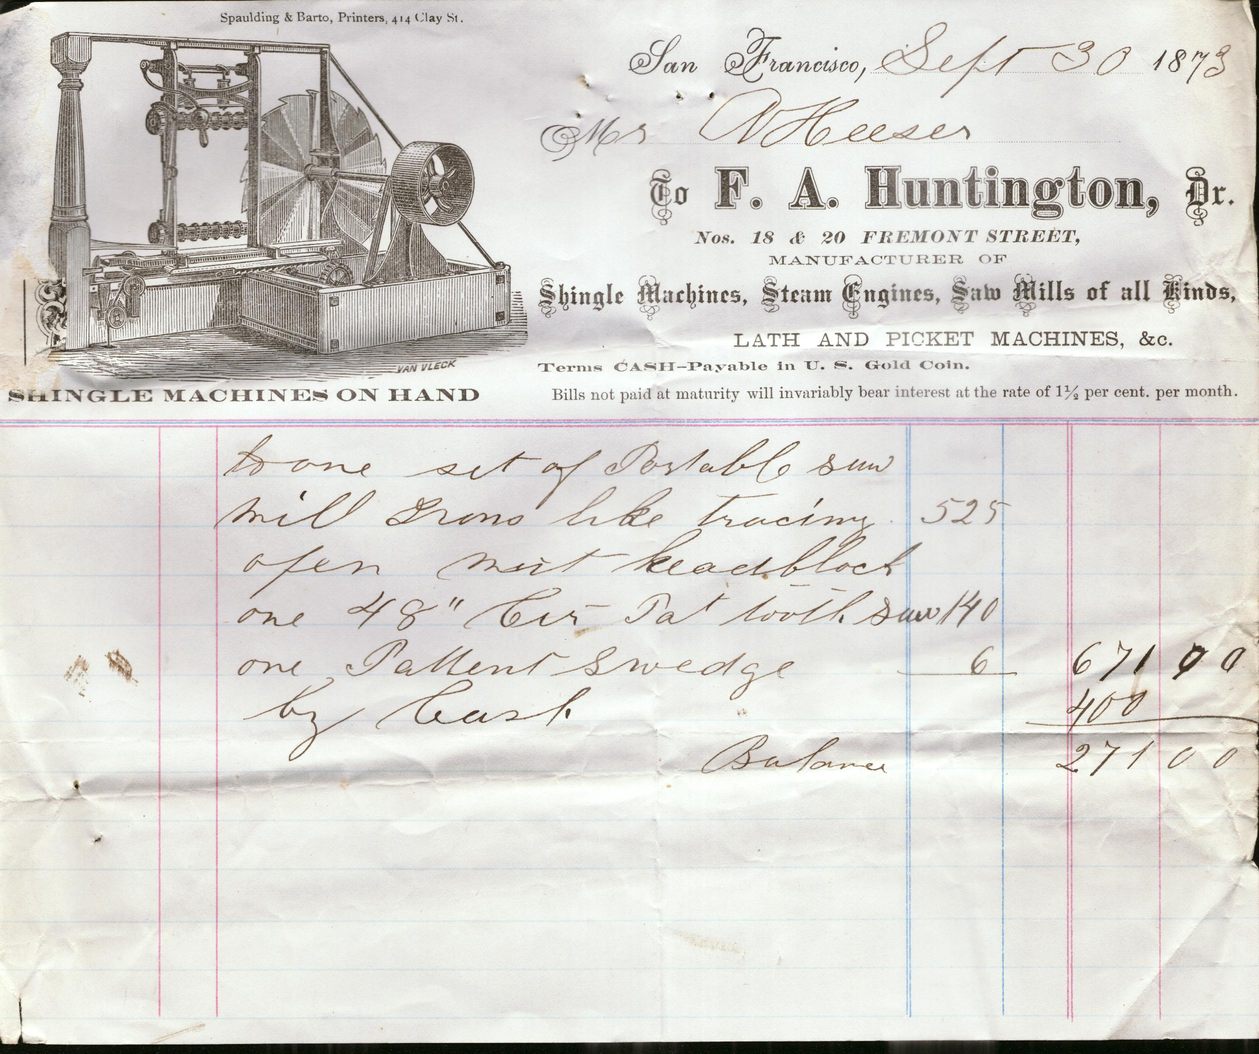 Spaulding & Barto, Printers, 414 Clay St.
San Francisco, Sept 30 1873
Mr Heeser
To F. A. Huntington, Dr.
Nos. 18 & 20 FREMONT STREET,
MANUFACTURER OF
Shingle Machines, Steam Engines, Saw Mills of all Kinds,
LATH AND PICKET MACHINES, &c.
VAN VLECK
Terms CASH-Payable in U. S. Gold Coin.
SHINGLE MACHINES ON HAND
Bills not paid at maturity will invariably bear interest at the rate of 1½ per cent. per month.
to one set of Portable saw
mill Irons like tracing 525
open nut headblock
one 48" Cir Pat tooth saw 140
one Pattent Swedge 6 671 00
by Cash 400
Balance 271 00